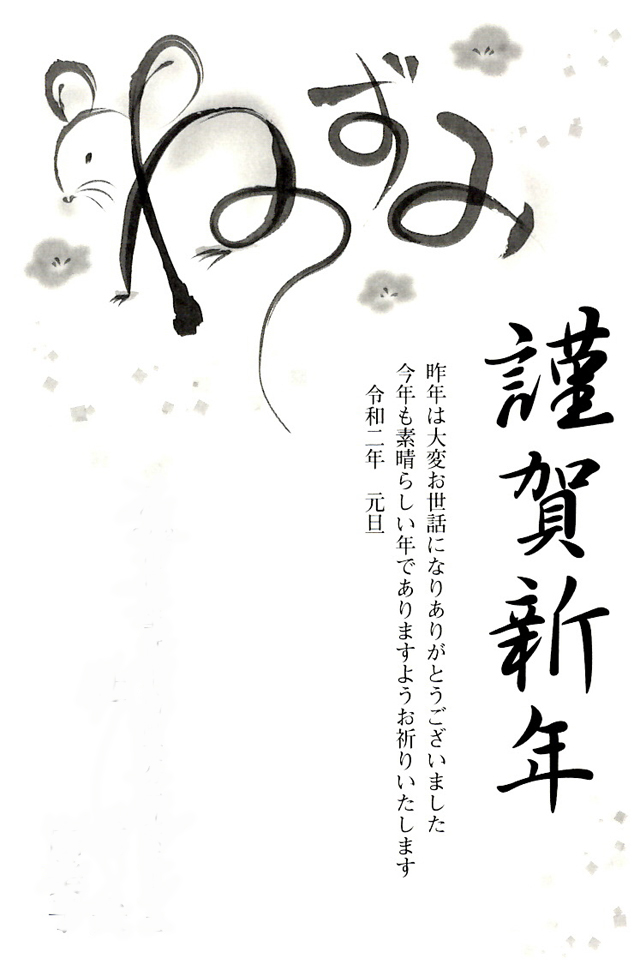 ねずみ
謹賀新年
昨年は大変お世話になりありがとうございました
今年も素晴らしい年でありますようお祈りいたします
令和二年　元旦